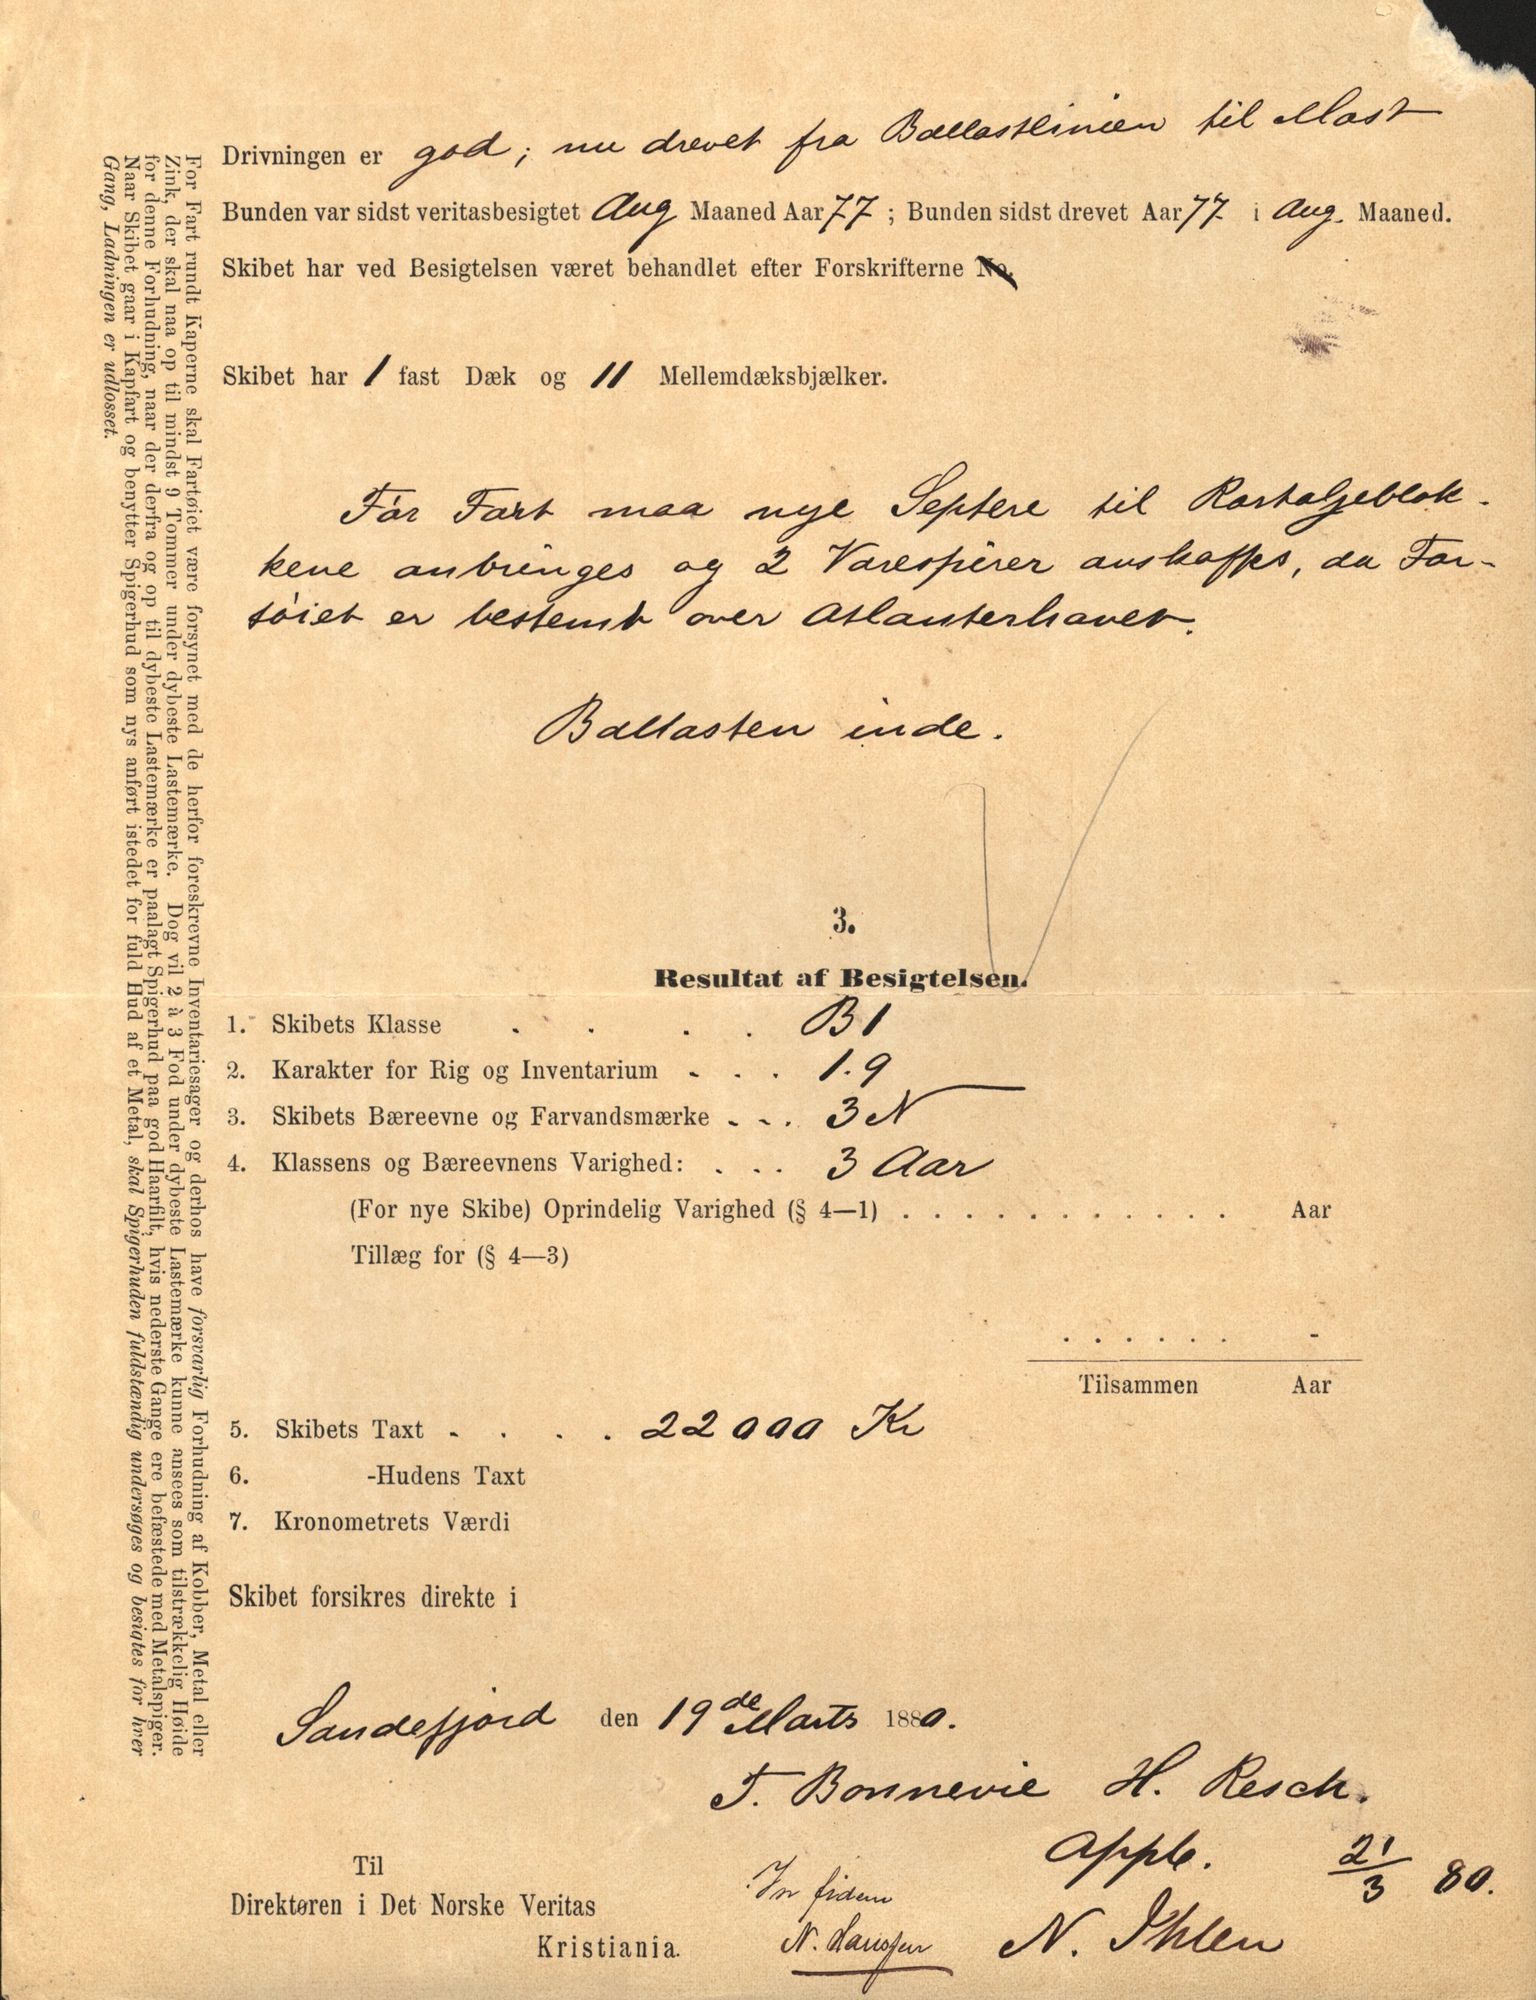 Drivningen er god; nu drevet fra Ballastlinien til Mast
Bunden var sidst veritasbesigtet Aug Maaned Aar 77 ; Bunden sidst drevet Aar 77 i Aug. Maaned.
Skibet har ved Besigtelsen været behandlet efter Forskrifterne No.
Skibet har 1 fast Dæk og 11 Mellemdæksbjælker.
Før Fart maa nye Septere til Rortaljeblok-
kene anbringes og 2 Varespirer anskaffes, da Far-
tøiet er bestemt over Atlanterhavet.
Ballasten inde.
3.
Resultat af Besigtelsen.
1. Skibets Klasse . . . . B 1
2. Karakter for Rig og Inventarium . . . 1. 9
3. Skibets Bæreevne og Farvandsmærke . . . 3 N
4. Klassens og Bæreevnens Varighed: . . . 3 Aar
(For nye Skibe) Oprindelig Varighed (§ 4—1) . . . . . . . . . . . . Aar
Tillæg for (§ 4—3)
. . . . . . -
Tilsammen Aar
5. Skibets Taxt . . . . 22 000 Kr
6. -Hudens Taxt
7. Kronometrets Værdi
Skibet forsikres direkte i
Sandefjord den 19de Marts 1880.
T. Bonnevie H. Resch.
Appb. 21/3 80.
N. Ihlen
Til
Direktøren i Det Norske Veritas
Kristiania.
In fidem
N. Hanssen
For Fart rundt Kaperne skal Fartøiet være forsynet med de herfor foreskrevne Inventariesager og derhos have forsvarlig Forhudning af Kobber, Metal eller
Zink, der skal naa op til mindst 9 Tommer under dybeste Lastemærke. Dog vil 2 à 3 Fod under dybeste Lastemærke kunne ansees som tilstrækkelig Høide
for denne Forhudning, naar der derfra og op til dybeste Lastemærke er paalagt Spigerhud paa god Haarfilt, hvis nederste Gange ere befæstede med Metalspiger.
Naar Skibet gaar i Kapfart og benytter Spigerhud som nys anført istedet for fuld Hud af et Metal, skal Spigerhuden fuldstændig undersøges og besigtes for hver
Gang, Ladningen er udlosset.